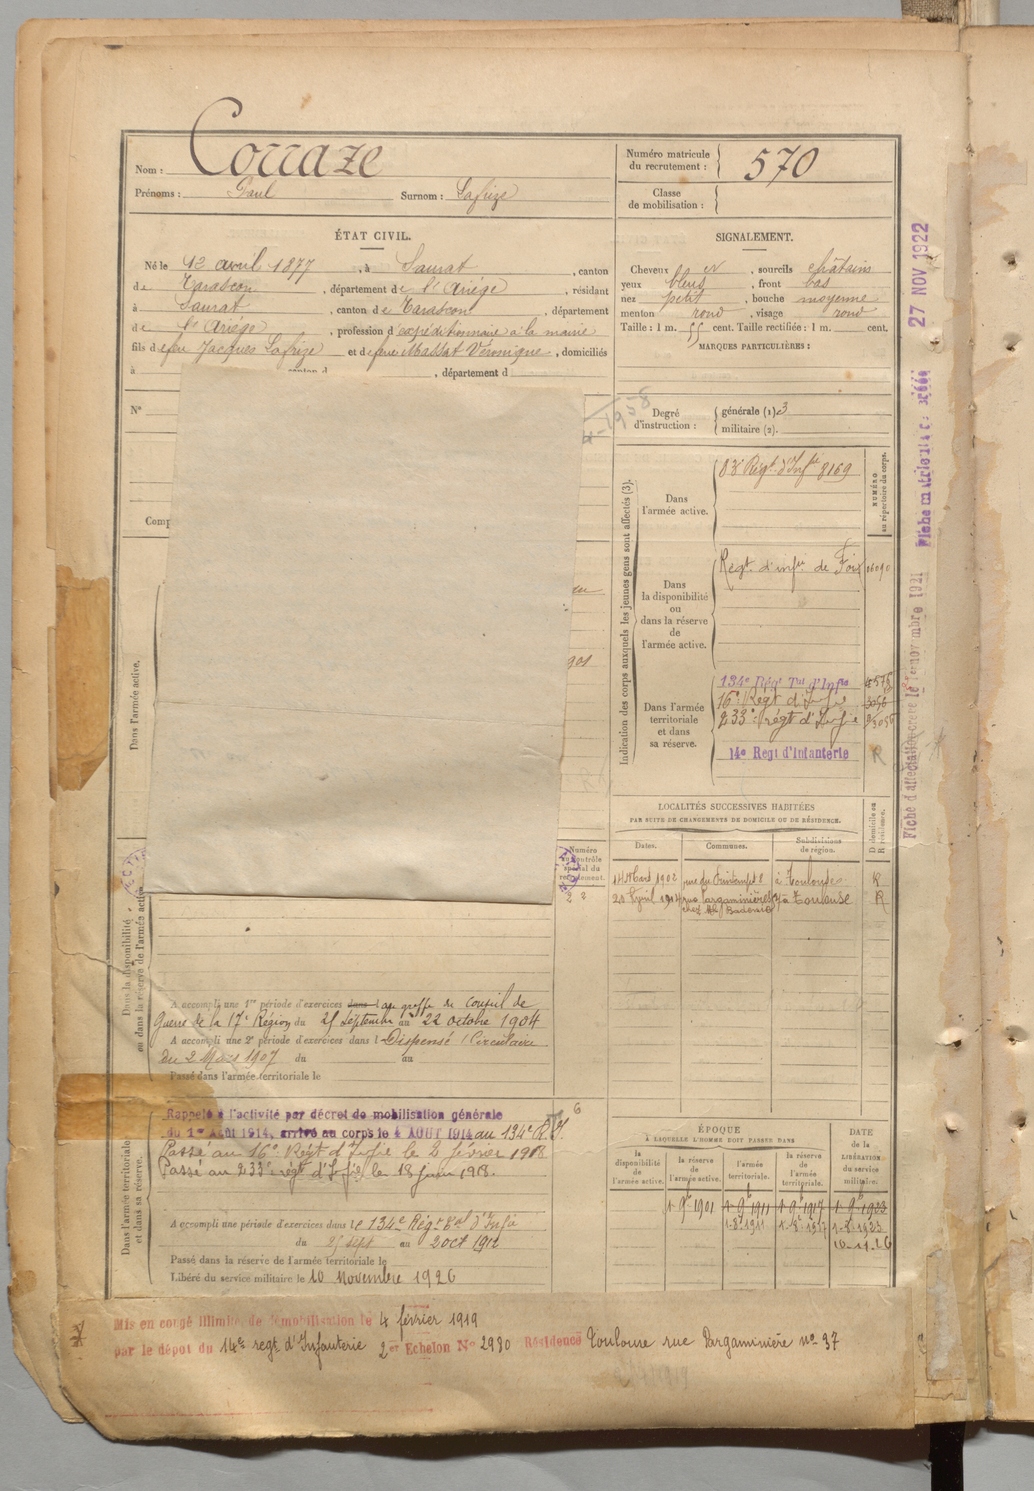 Nom : Corraze
Prénoms : Paul Surnom : Lafrize
Numéro matricule du recrutement : 570
Classe de mobilisation :
ÉTAT CIVIL.
Né le 12 avril 1877, à Saurat, canton
de Tarascon, département de l'Ariège, résidant
à Saurat, canton de Tarascon, département
de l'Ariège, profession d'expéditionnaire à la mairie
fils de feu Jacques Lafrize et de feue Massat Véronique, domiciliés
à canton d , département d
N°
Comp
SIGNALEMENT.
Cheveux , sourcils châtains
yeux bleus, front bas
nez petit, bouche moyenne
menton rond, visage rond
Taille : 1 m. 55 cent. Taille rectifiée : 1 m. cent.
MARQUES PARTICULIÈRES :
Degré d'instruction : générale (1). 3
militaire (2).
Indication des corps auxquels les jeunes gens sont affectés (3).
NUMÉRO au répertoire du corps.
Dans l'armée active.
83e Régt. d'Infie 8169
Dans la disponibilité ou dans la réserve de l'armée active.
Régt. d'infie de Foix
Dans l'armée territoriale et dans sa réserve.
134e Régt Tal d'Infie
16e Régt d'Infie
233e régt d'Infie
14e Régt d'Infanterie R
LOCALITÉS SUCCESSIVES HABITÉES
PAR SUITE DE CHANGEMENTS DE DOMICILE OU DE RÉSIDENCE.
Dates. Communes. Subdivisions de région. D domicile ou R résidence.
14 Mars 1902 rue du à Toulouse R
rue Pargaminières à Toulouse R
Dans l'armée active.
Numéro au contrôle spécial du recrutement.
Dans la disponibilité ou dans la réserve de l'armée active
A accompli une 1re période d'exercices dans l au greffe du Conseil de
Guerre de la 17e Région du 25 septembre au 22 octobre 1904
A accompli une 2e période d'exercices dans l Dispensé (Circulaire
du 2 Mars 1907 du au
Passé dans l'armée territoriale le
Dans l'armée territoriale et dans sa réserve.
Rappelé à l'activité par décret de mobilisation générale
du 1er Août 1914, arrivé au corps le 4 AOUT 1914 au 134e R.I.
Passé au 16e Régt d'Infie le 2 février 1918
Passé au 233e régt d'Infie le 18 juin 1918.
A accompli une période d'exercices dans le 134e Régt Tal d'Infie
du 25 sept au 2 oct 1912
Passé dans la réserve de l'armée territoriale le
Libéré du service militaire le 10 novembre 1926
ÉPOQUE
A LAQUELLE L'HOMME DOIT PASSER DANS
DATE de la LIBÉRATION du service militaire.
la disponibilité de l'armée active. la réserve de l'armée active. l'armée territoriale. la réserve de l'armée territoriale.
1-9e 1901 1-9e 1911 1-9e 1917 1-9e 1923
1-8e 1911 1-8e 1917 1-8e 1923
10-11-26
Mis en congé illimité de démobilisation le 4 février 1919
par le dépôt du 14e régt d'Infanterie 2er Echelon N° 2930 Résidence Toulouse rue Pargaminière n° 37
Fiche d'affectation créée le 1er novembre 1921
Fiche matricule créée 27 NOV 1922